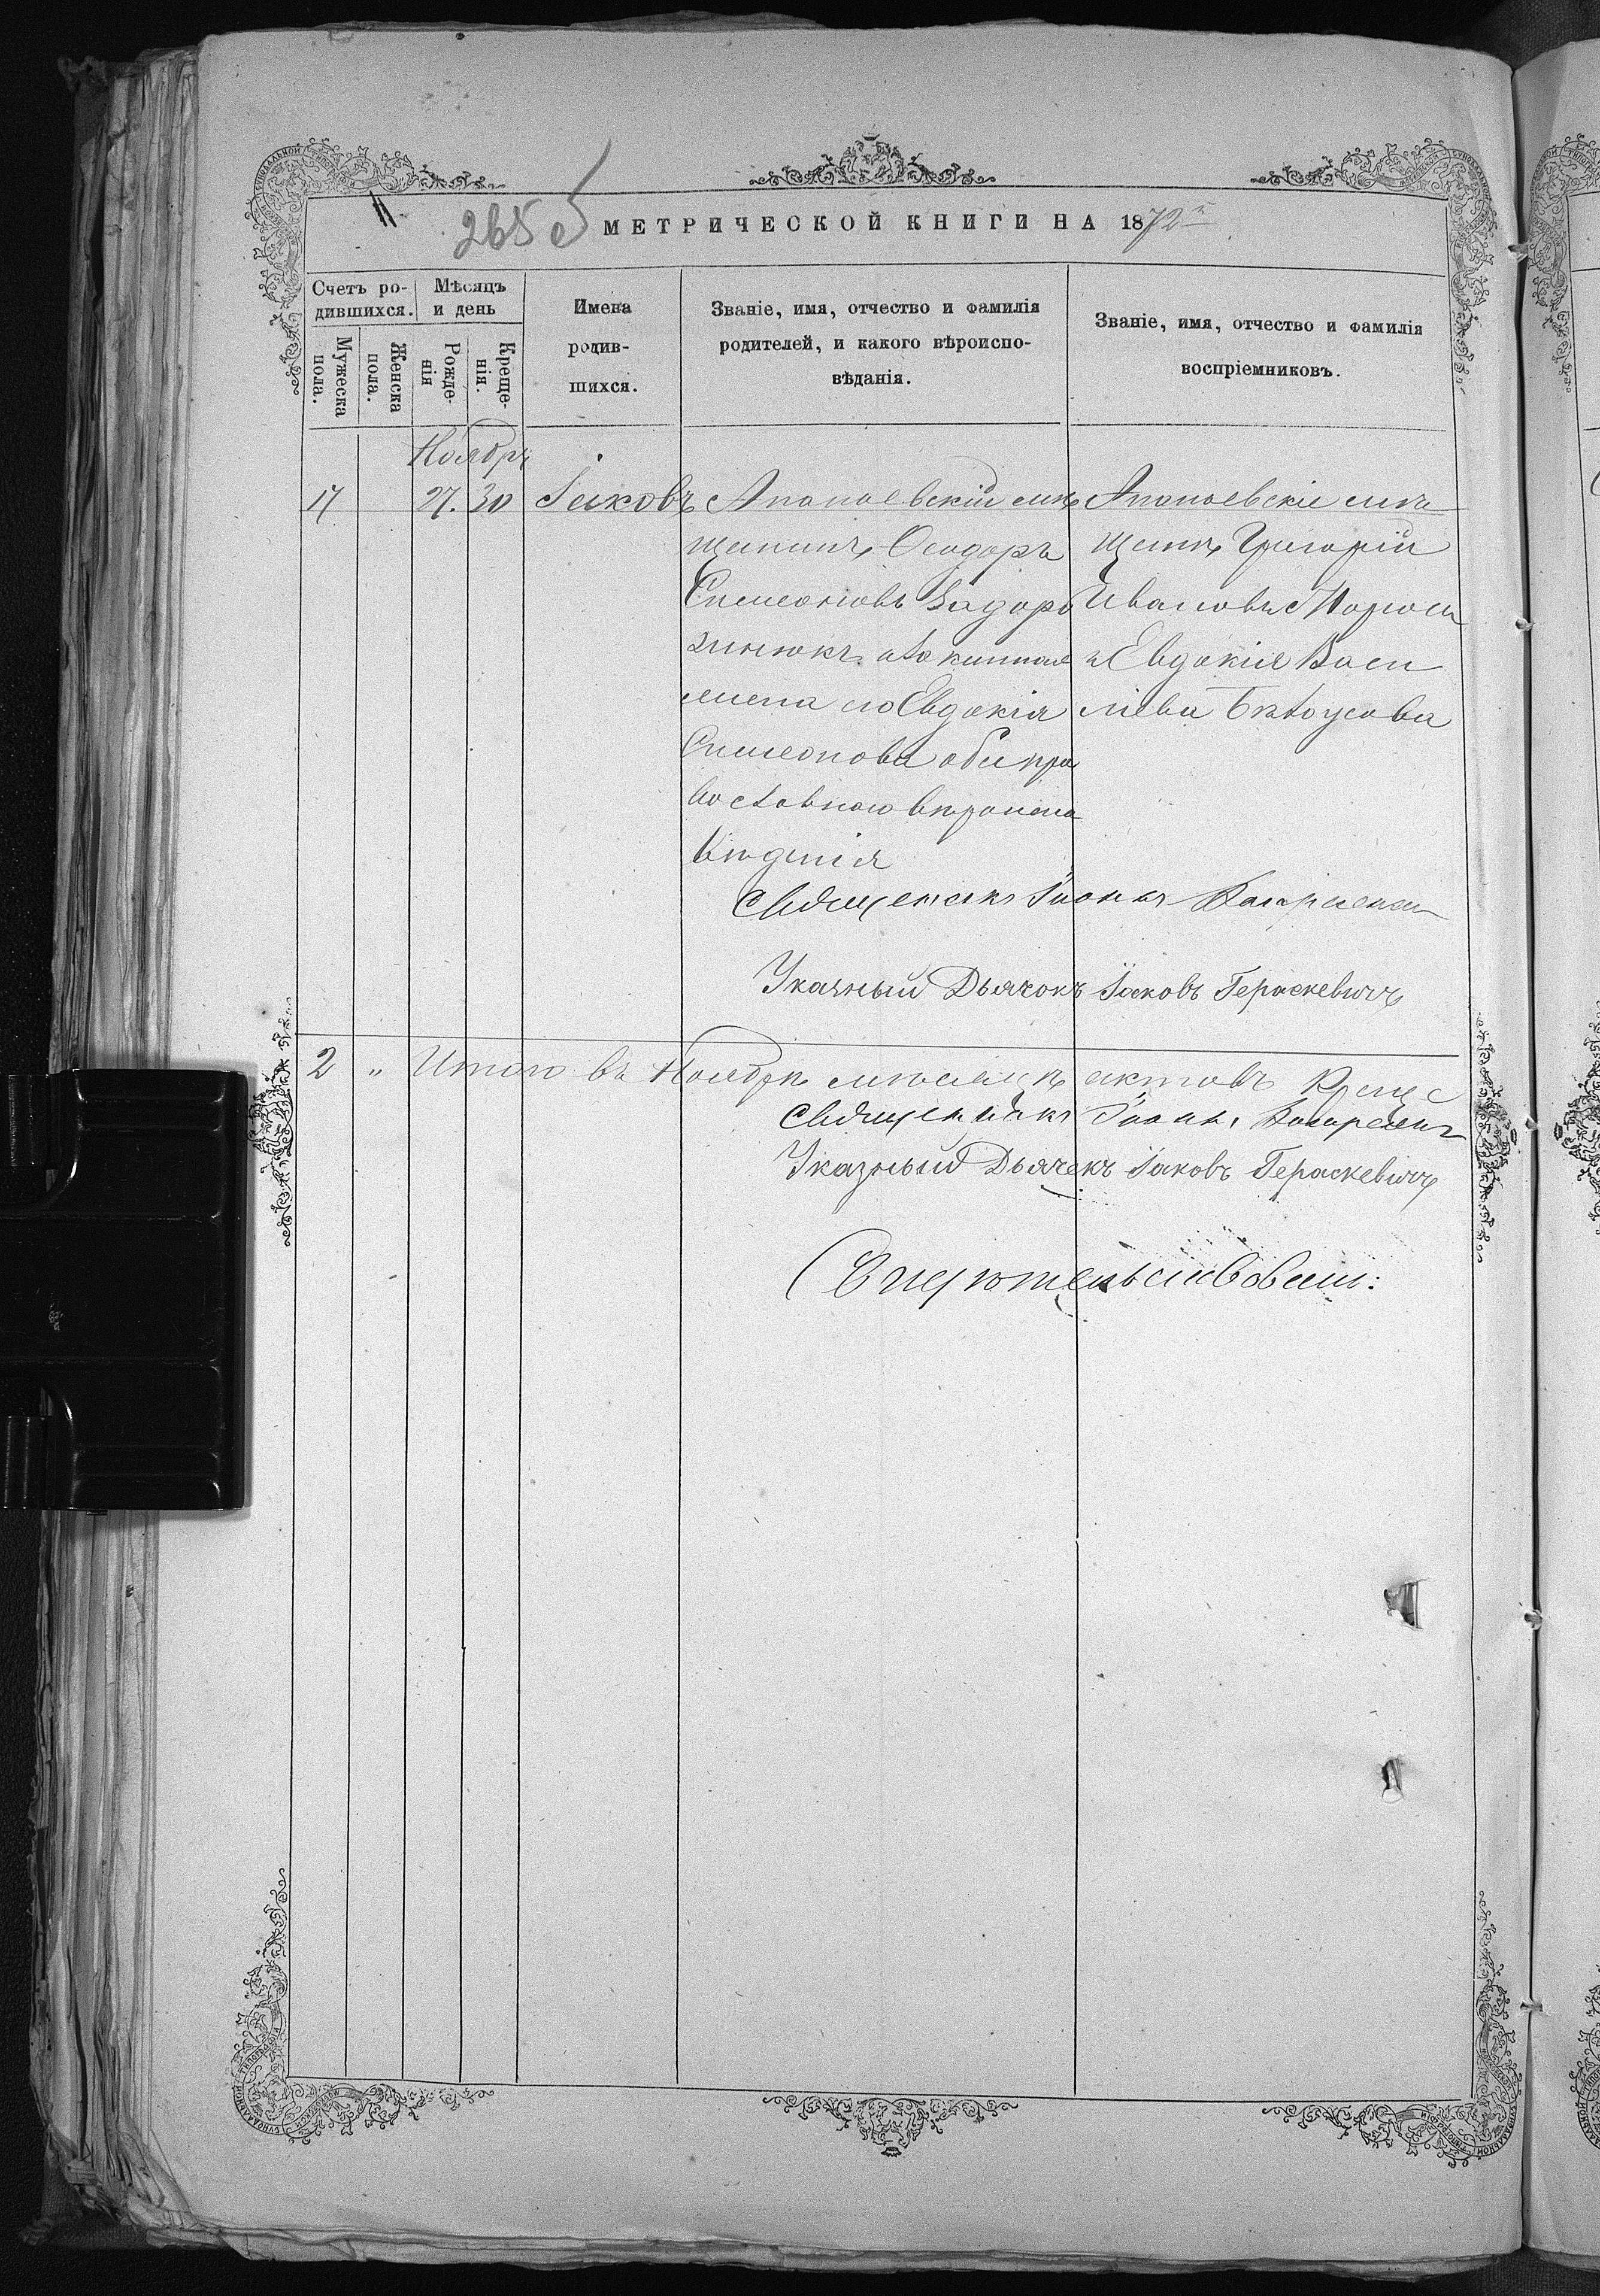 265 об
МЕТРИЧЕСКОЙ КНИГИ НА 1872й
Счетъ ро-
дившихся.
Мужеска
пола.
Женска
пола.
Мѣсяцъ
и день
Рожде-
нія
Креще-
нія.
Имена
родив-
шихся.
Званіе, имя, отчество и фамилія
родителей, и какого вѣроиспо-
вѣданія.
Званіе, имя, отчество и фамилія
воспріемниковъ.
Ноябрь
17 27. 30 Іаковъ
Ананьевскій мѣ
щанинъ Ѳеодоръ
Симеоновъ Задоро
жнюкъ
жена его Евдокія
Симеонова оба пра
вославного вѣроиспо
вѣданія
Ананьевскіе мѣ
щане Григорій
Ивановъ
и Евдокія Васи
ліева Бѣлоусова
Священникъ Іоаннъ
Указный Дьячокъ Іаковъ Гераскевичъ
2 „ Итого въ Ноябрѣ мѣсяцѣ актовъ
Священникъ Іоаннъ
Указный Дьячекъ Іаковъ Гераскевичъ
Свидѣтельствовали: